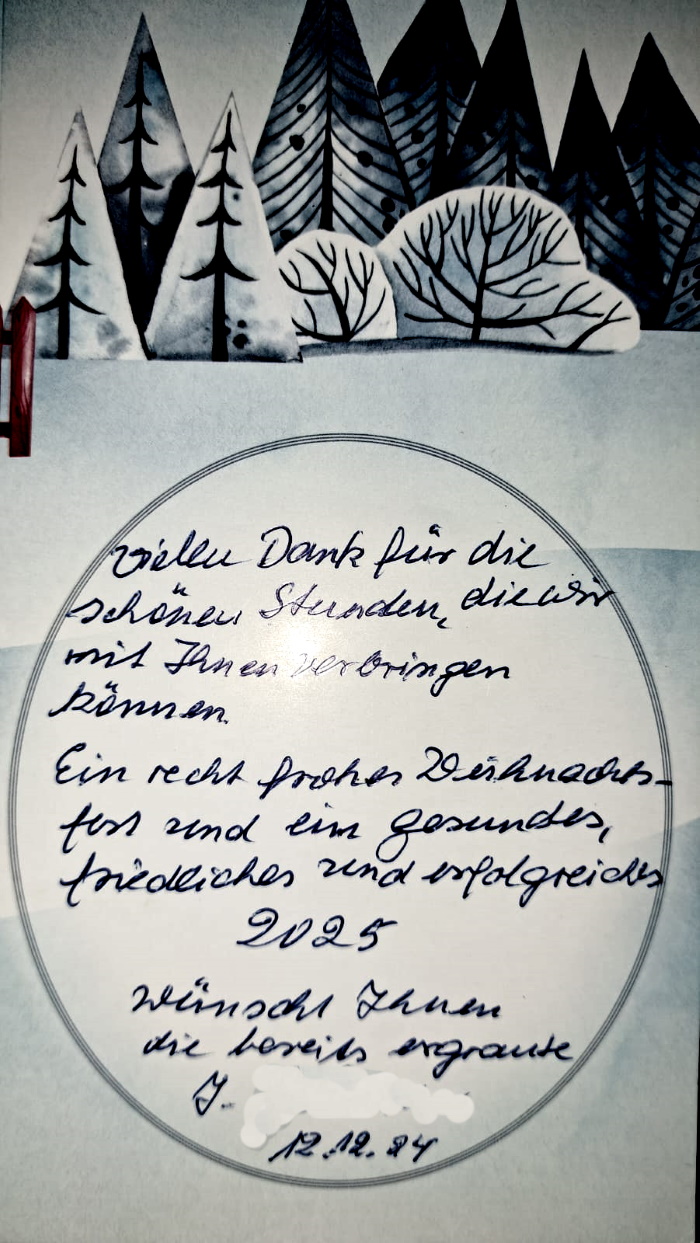 vielen Dank für die
schönen Stunden, die wir
mit Ihnen verbringen
können
Ein recht frohes Weihnachts-
fest und ein gesundes,
friedliches und erfolgreiches
2025
wünscht Ihnen
die bereits ergraute
J.
12.12.24